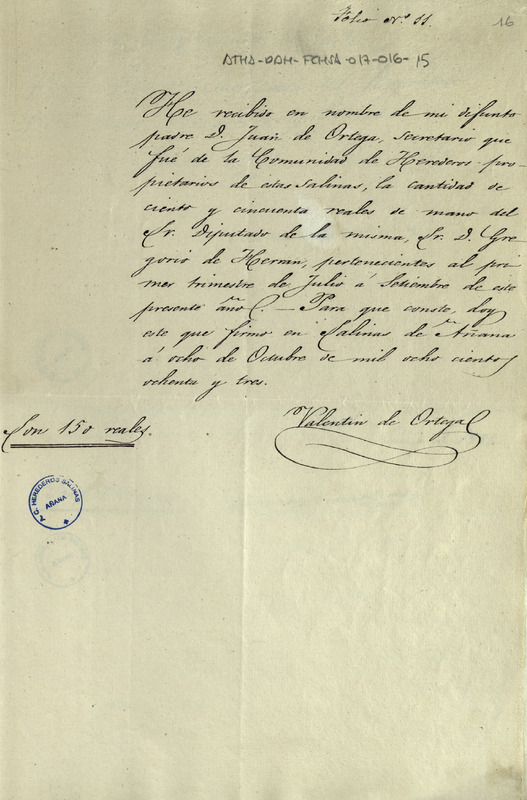 Folio Nº. 11.
16
ATHA-DAH-FCHSA-017-016-15
He recibido en nombre de mi difunto
padre D. Juan de Ortega, secretario que
fué de la Comunidad de Herederos pro-
pietarios de estas Salinas, la cantidad de
ciento y cincuenta reales de mano del
Sr. Diputado de la misma, Sr. D. Gre-
gorio de Herran, pertenecientes al pri
mer trimestre de Julio á Setiembre de este
presente año. — Para que conste, doy
este que firmo en Salinas de Añana
á ocho de Octubre de mil ocho cientos
ochenta y tres.
Son 150 reales.
Valentin de Ortega
A. G. HEREDEROS SALINAS
AÑANA